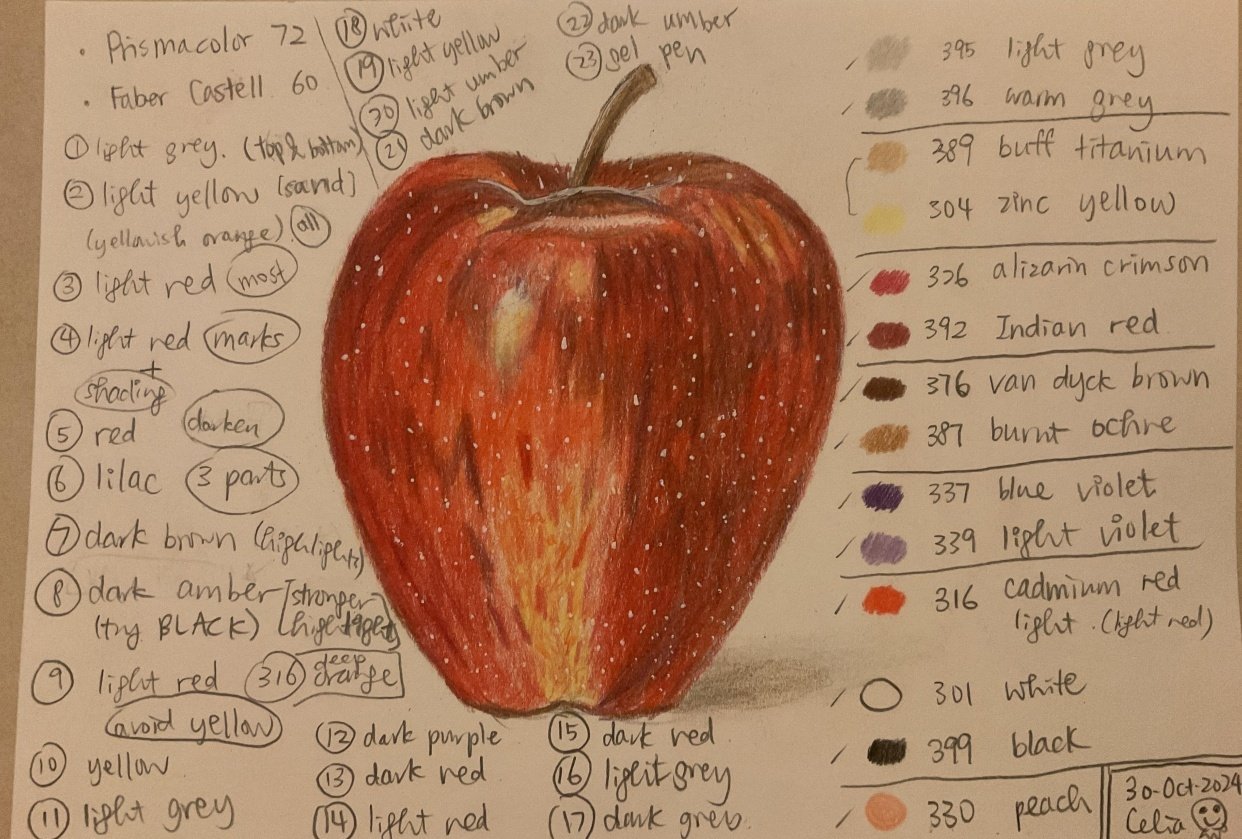 • Prismacolor 72
• Faber Castell 60
① light grey. (top & bottom)
② light yellow [sand]
(yellowish orange) all
③ light red most
④ light red marks
+
shading
⑤ red darken
⑥ lilac 3 parts
⑦ dark brown (highlights)
⑧ dark amber [stronger
(try BLACK) highlight]
⑨ light red 316 deep orange
avoid yellow
⑩ yellow
⑪ light grey
⑫ dark purple
⑬ dark red
⑭ light red
⑮ dark red
⑯ light grey
⑰ dark grey
⑱ white
⑲ light yellow
⑳ light umber
㉑ dark brown
㉒ dark umber
㉓ gel pen
395 light grey
396 warm grey
389 buff titanium
304 zinc yellow
326 alizarin crimson
392 Indian red
376 van dyck brown
387 burnt ochre
337 blue violet
339 light violet
316 cadmium red
light. (light red)
301 white
399 black
330 peach
30-Oct-2024
Celia